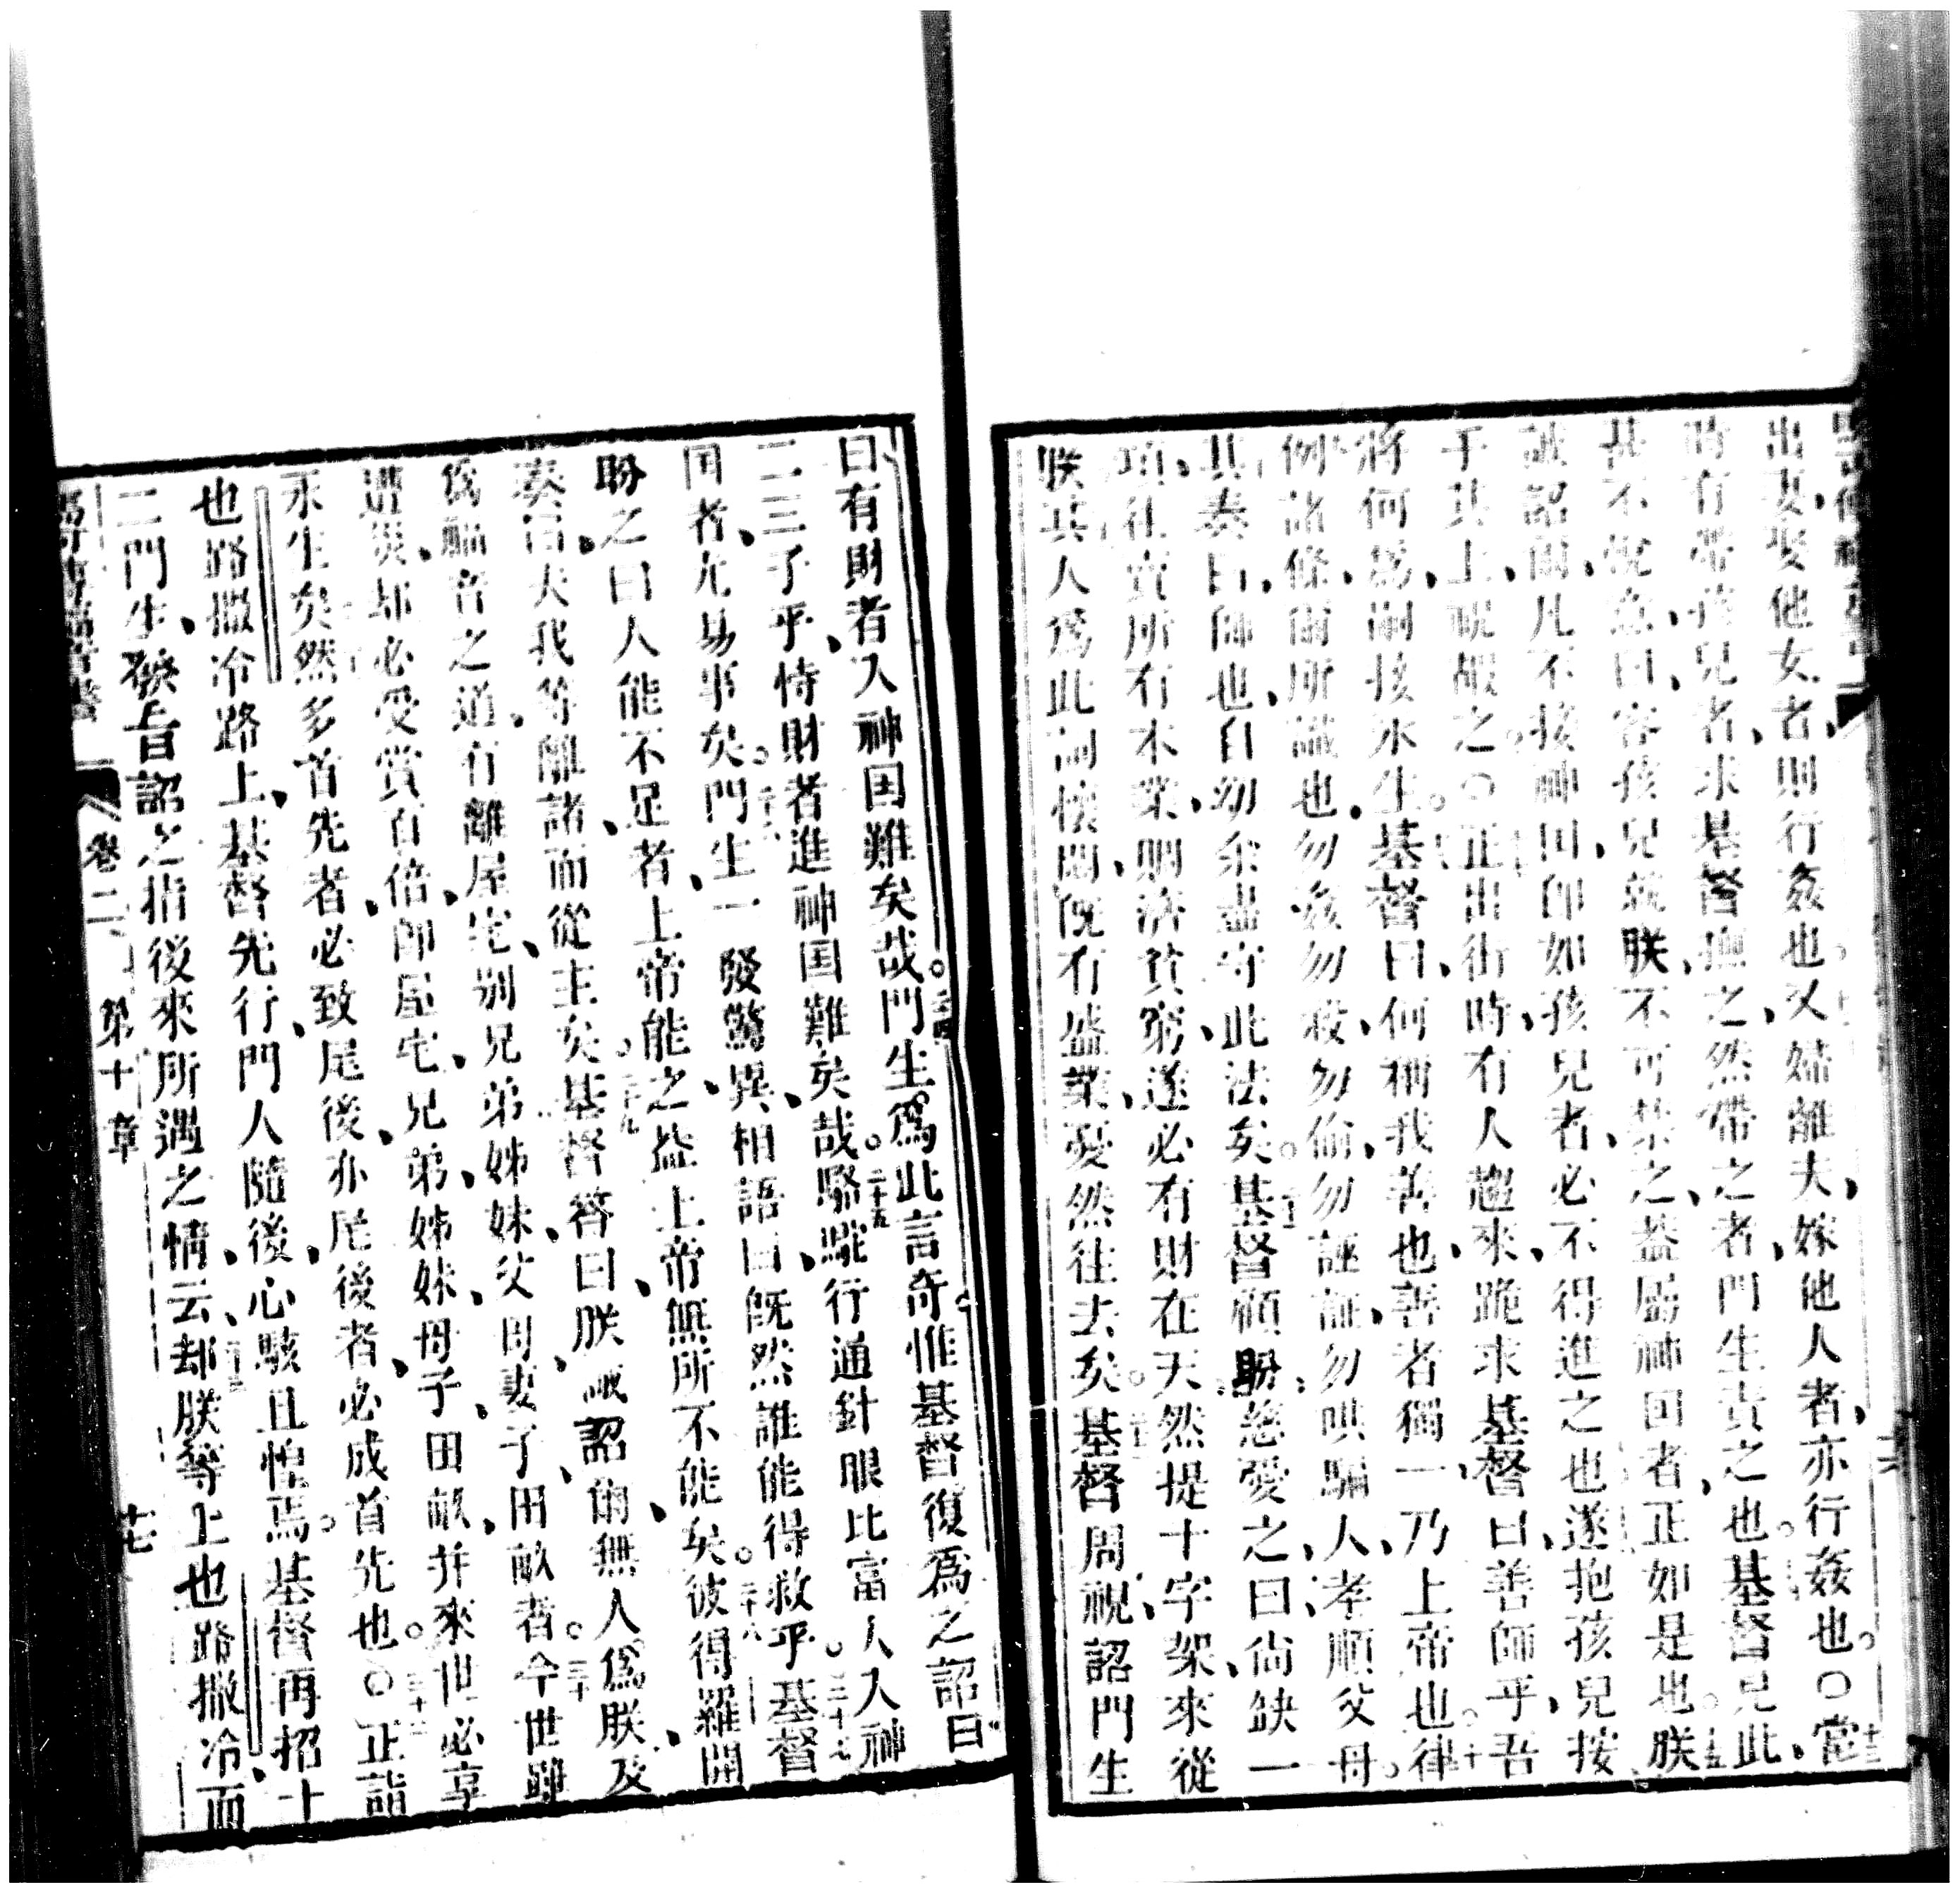 出妻娶他女者則行姦也又婦離夫嫁他人者亦行姦也〇當
時有帶孩兒者求基督撫之然帶之者門生責之也基督見此
甚不悅意曰容孩兒就朕不可禁之蓋屬神囯者正如是也朕
誠詔爾凡不接神囯卽如孩兒者必不得進之也遂抱孩兒按
手其上祝嘏之〇正出街時有人趨來跪求基督曰善師乎吾
將何爲嗣接永生基督曰何稱我善也善者獨一乃上帝也律
例諸條爾所識也勿姦勿殺勿偷勿誣証勿哄騙人孝順父母
其奏曰師也自幼余盡守此法矣基督顧盼慈愛之曰尙缺一
項往賣所有本業賙濟貧窮遂必有財在天然提十字架來從
朕其人爲此詞懷悶旣有盛業憂然往去矣基督周視詔門生
曰有財者入神囯難矣哉門生爲此言奇惟基督復爲之詔曰
二三子乎恃財者進神囯難矣哉駱駝行通針眼比富人入神
囯者尤易事矣門生一發驚異相語曰旣然誰能得救乎基督
盼之曰人能不足者上帝能之蓋上帝無所不能矣彼得羅開
奏曰夫我等離諸而從主矣基督答曰朕誠詔爾無人爲朕及
爲福音之道有離屋宅別兄弟姊妹父母妻子田畝者今世雖
遭災却必受賞百倍卽屋宅兄弟姊妹母子田畝并來世必享
永生矣然多首先者必致尾後亦尾後者必成首先也〇正詣
也路撒冷路上基督先行門人隨後心駭且惶焉基督再招十
二門生發旨詔之指後來所遇之情云却朕等上也路撒冷而
卷二 第十章 十七